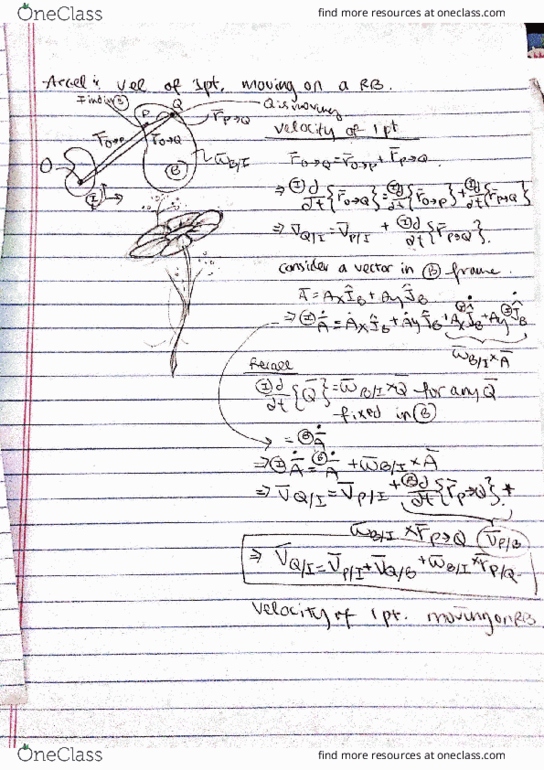 OneClass
find more resources at oneclass.com
Accel & vel of 1pt. moving on a RB.
P Q Q is moving
r̄O→P r̄O→Q r̄P→Q
velocity of 1 pt
O Ⓑ ω̄B/I
Ⓘ
r̄O→Q = r̄O→P + r̄P→Q
⇒ Ⓘd/dt{r̄O→Q} = Ⓘd/dt{r̄O→P} + Ⓘd/dt{r̄P→Q}
⇒ V̄Q/I = V̄P/I + Ⓘd/dt{r̄P→Q}.
Consider a vector in Ⓑ frame.
Ā = Ax ÎB + Ay ĴB
⇒ ⒾĀ̇ = Ȧx ÎB + Ȧy ĴB + Ax ÎB + Ay ĴB
ω̄B/I × Ā
Recall
Ⓘd/dt{Q̄} = ω̄B/I × Q̄ for any Q̄
fixed in Ⓑ
= ⒷĀ̇
⇒ ⒾĀ̇ = ⒷĀ̇ + ω̄B/I × Ā
⇒ V̄Q/I = V̄P/I + Ⓑd/dt{r̄P→Q} *
ω̄B/I × r̄P→Q V̄P/B
⇒ V̄Q/I = V̄P/I + V̄Q/B + ω̄B/I × r̄P/Q
Velocity of 1 pt. moving on RB
OneClass
find more resources at oneclass.com